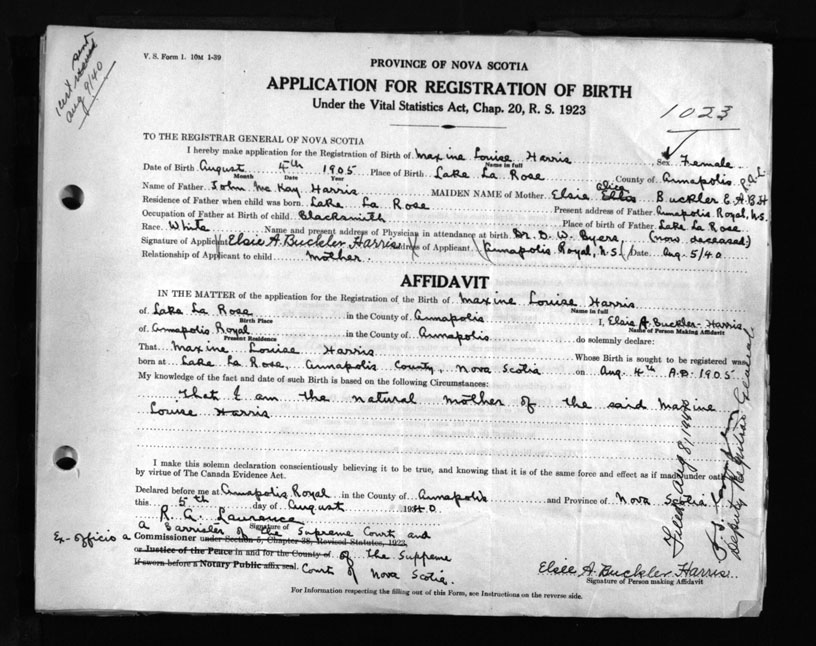 cert issued sent
Aug 9/40
V. S. Form 1. 10M 1-39
PROVINCE OF NOVA SCOTIA
APPLICATION FOR REGISTRATION OF BIRTH
Under the Vital Statistics Act, Chap. 20, R. S. 1923
1023
TO THE REGISTRAR GENERAL OF NOVA SCOTIA
I hereby make application for the Registration of Birth of Maxine Louise Harris Sex Female
Name in full
Date of Birth August 4th 1905 Place of Birth Lake La Rose County of Annapolis
Month Date Year
Name of Father John Mc Kay Harris MAIDEN NAME of Mother Elsie Ellis Alice Buckler E.A.B.H
Residence of Father when child was born Lake La Rose Present address of Father Annapolis Royal, N.S.
Occupation of Father at Birth of child Blacksmith Place of birth of Father Lake La Rose
Race White Name and present address of Physician in attendance at birth Dr. D. W. Byers (now deceased)
Signature of Applicant Elsie A. Buckler Harris Address of Applicant Annapolis Royal, N.S. Date Aug. 5/40
Relationship of Applicant to child mother.
AFFIDAVIT
IN THE MATTER of the application for the Registration of the Birth of Maxine Louise Harris
Name in full
of Lake La Rose in the County of Annapolis I, Elsie A. Buckler-Harris
Birth Place Name of Person Making Affidavit
of Annapolis Royal in the County of Annapolis do solemnly declare:
Present Residence
That Maxine Louise Harris Whose Birth is sought to be registered was
born at Lake La Rose, Annapolis County, Nova Scotia on Aug. 4th A.D. 1905
My knowledge of the fact and date of such Birth is based on the following Circumstances:
That I am the natural mother of the said Maxine
Louise Harris
I make this solemn declaration conscientiously believing it to be true, and knowing that it is of the same force and effect as if made under oath
by virtue of The Canada Evidence Act.
Declared before me at Annapolis Royal in the County of Annapolis and Province of Nova Scotia
this 5th day of August 1940
R. A. Laurence
Signature of
a Barrister of the Supreme Court and
Ex-officio a Commissioner under Section 5, Chapter 38, Revised Statutes, 1923,
or Justice of the Peace in and for the County of of the Supreme
If sworn before a Notary Public affix seal. Court of Nova Scotia.
Elsie A. Buckler Harris
Signature of Person making Affidavit
For Information respecting the filling out of this Form, see Instructions on the reverse side.
Filed Aug 8, 1940
Deputy Registrar General